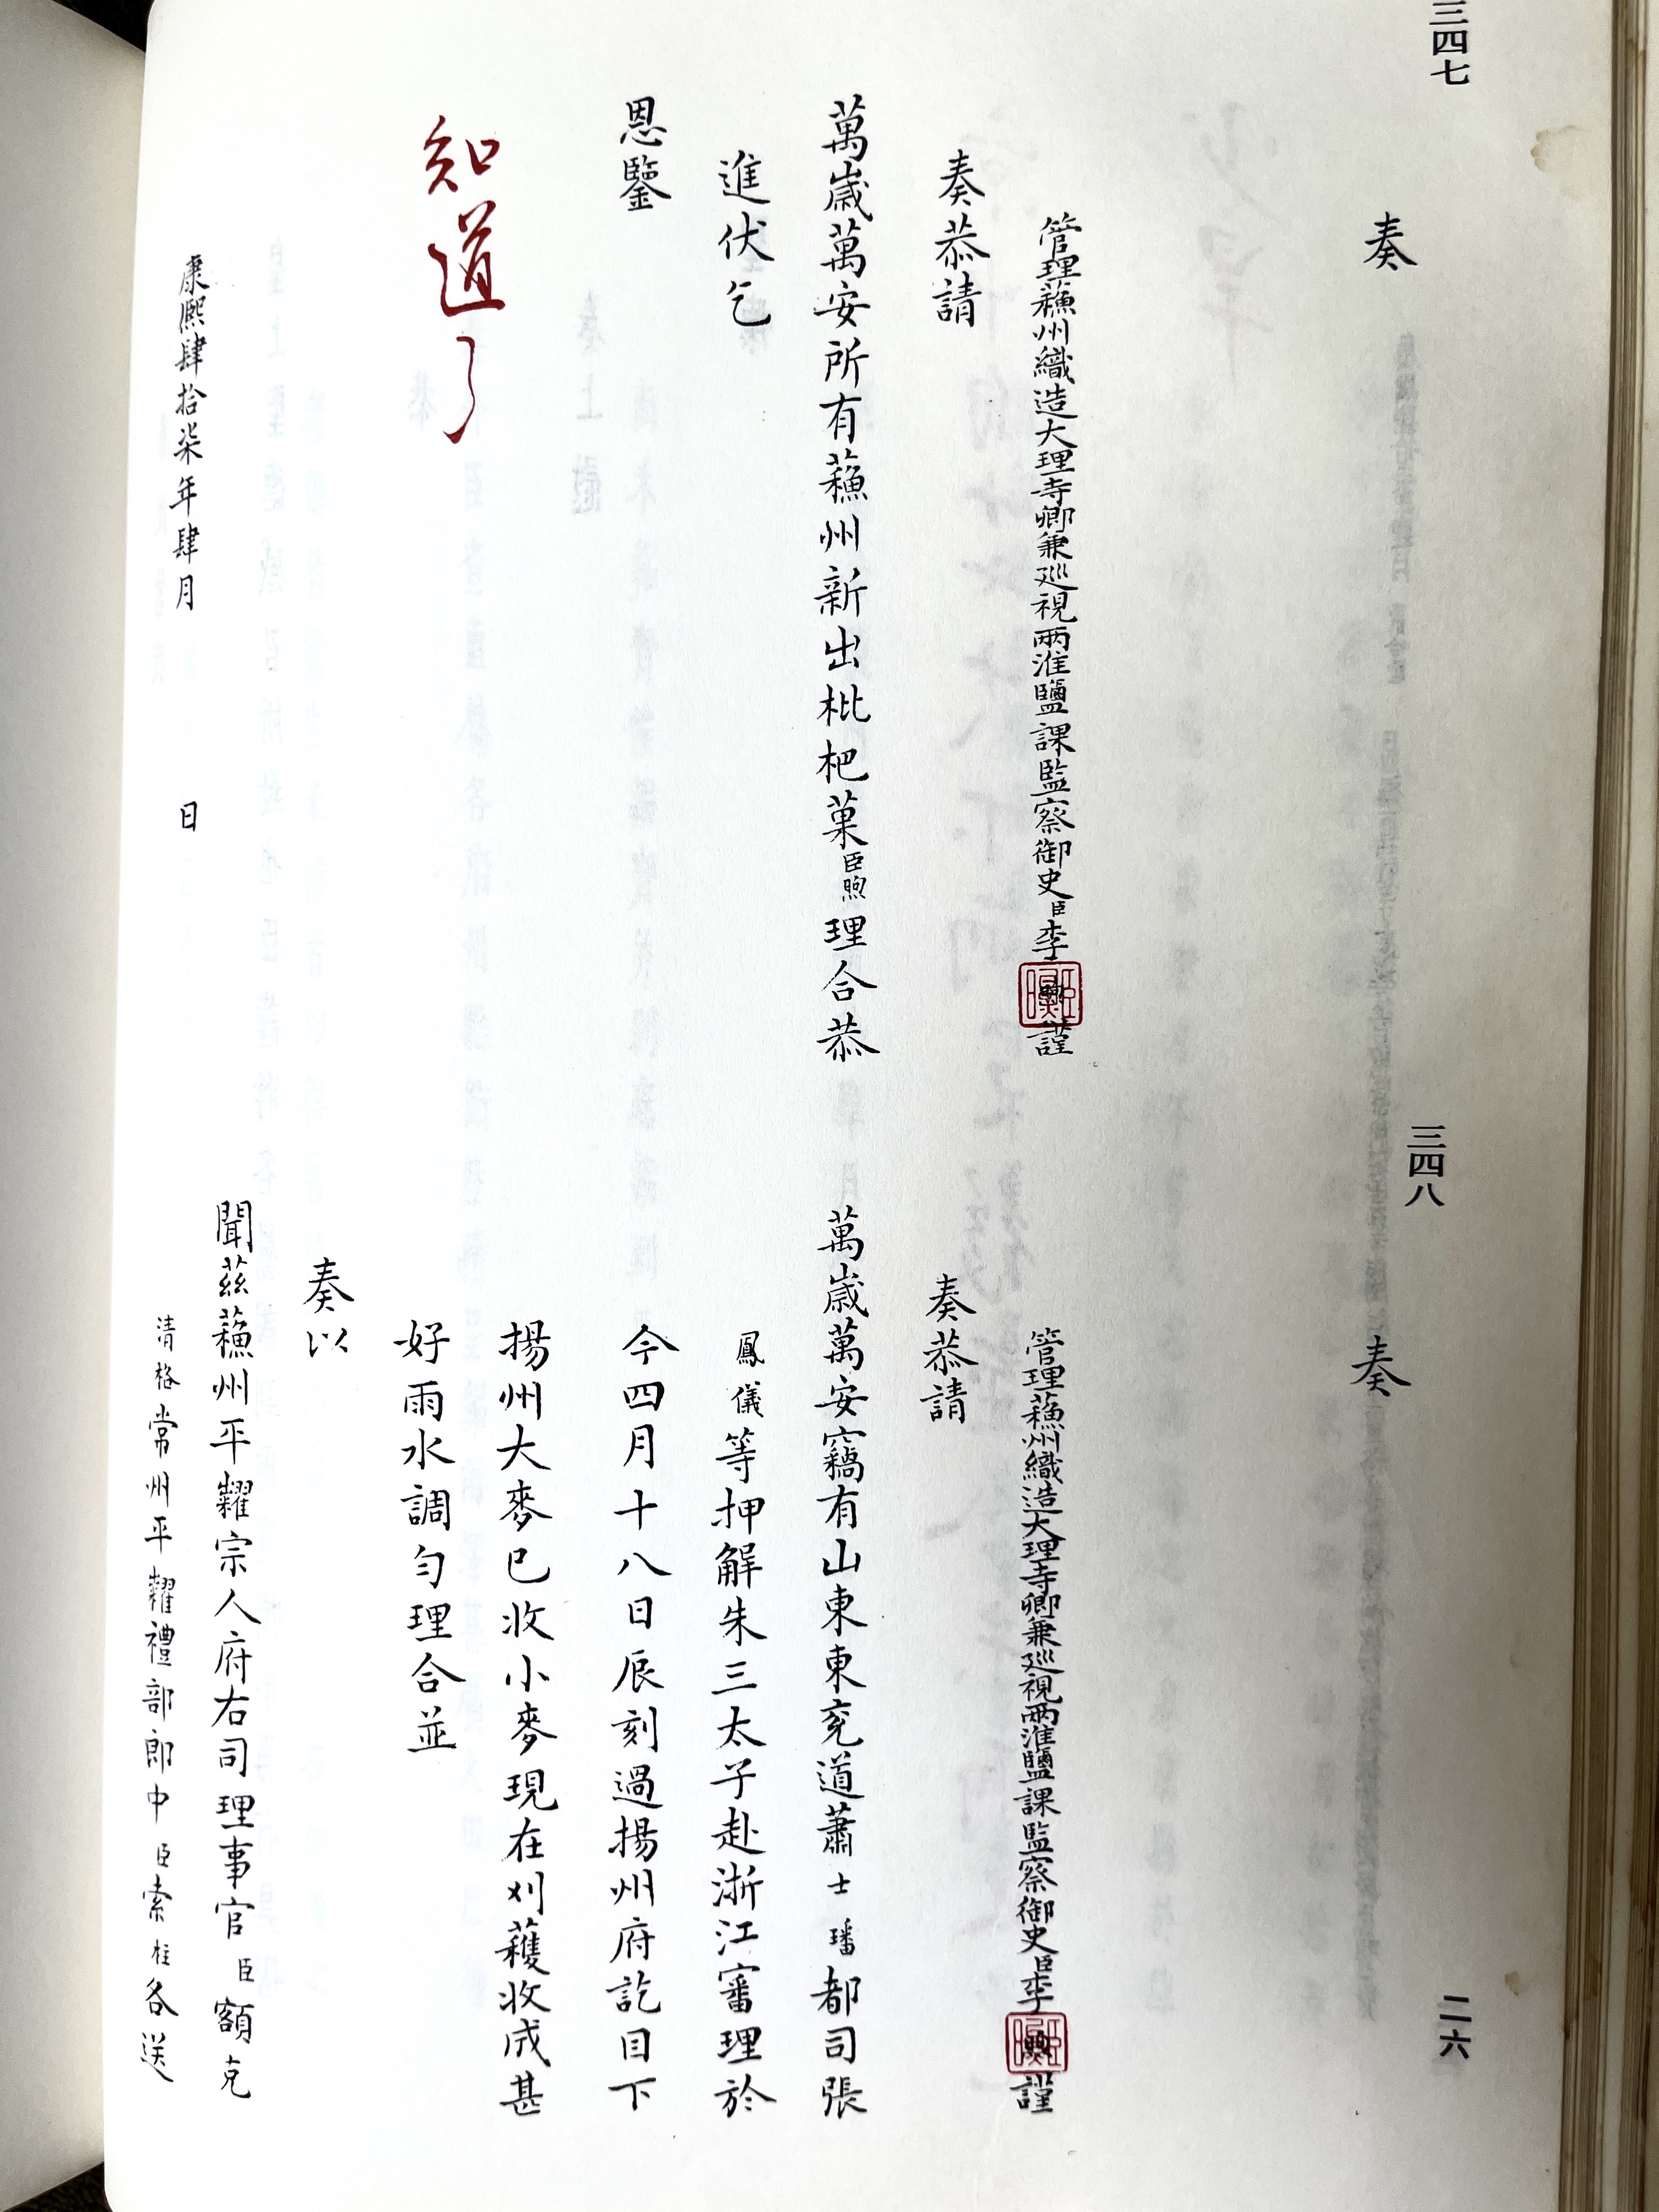 三四七
奏
管理蘓州織造大理寺卿兼巡視兩淮鹽課監察御史臣李煦謹
奏恭請
萬歲萬安所有蘓州新出枇杷菓臣煦理合恭
進伏乞
恩鑒
知道了
康熙肆拾柒年肆月 日
三四八
奏
管理蘓州織造大理寺卿兼巡視兩淮鹽課監察御史臣李煦謹
奏恭請
萬歲萬安竊有山東東兗道蕭士璠都司張
鳳儀等押解朱三太子赴浙江審理於
今四月十八日辰刻過揚州府訖目下
揚州大麥已收小麥現在刈穫收成甚
好雨水調勻理合並
奏以
聞茲蘓州平糶宗人府右司理事官臣額克
清格常州平糶禮部郎中臣索柱各送
二六